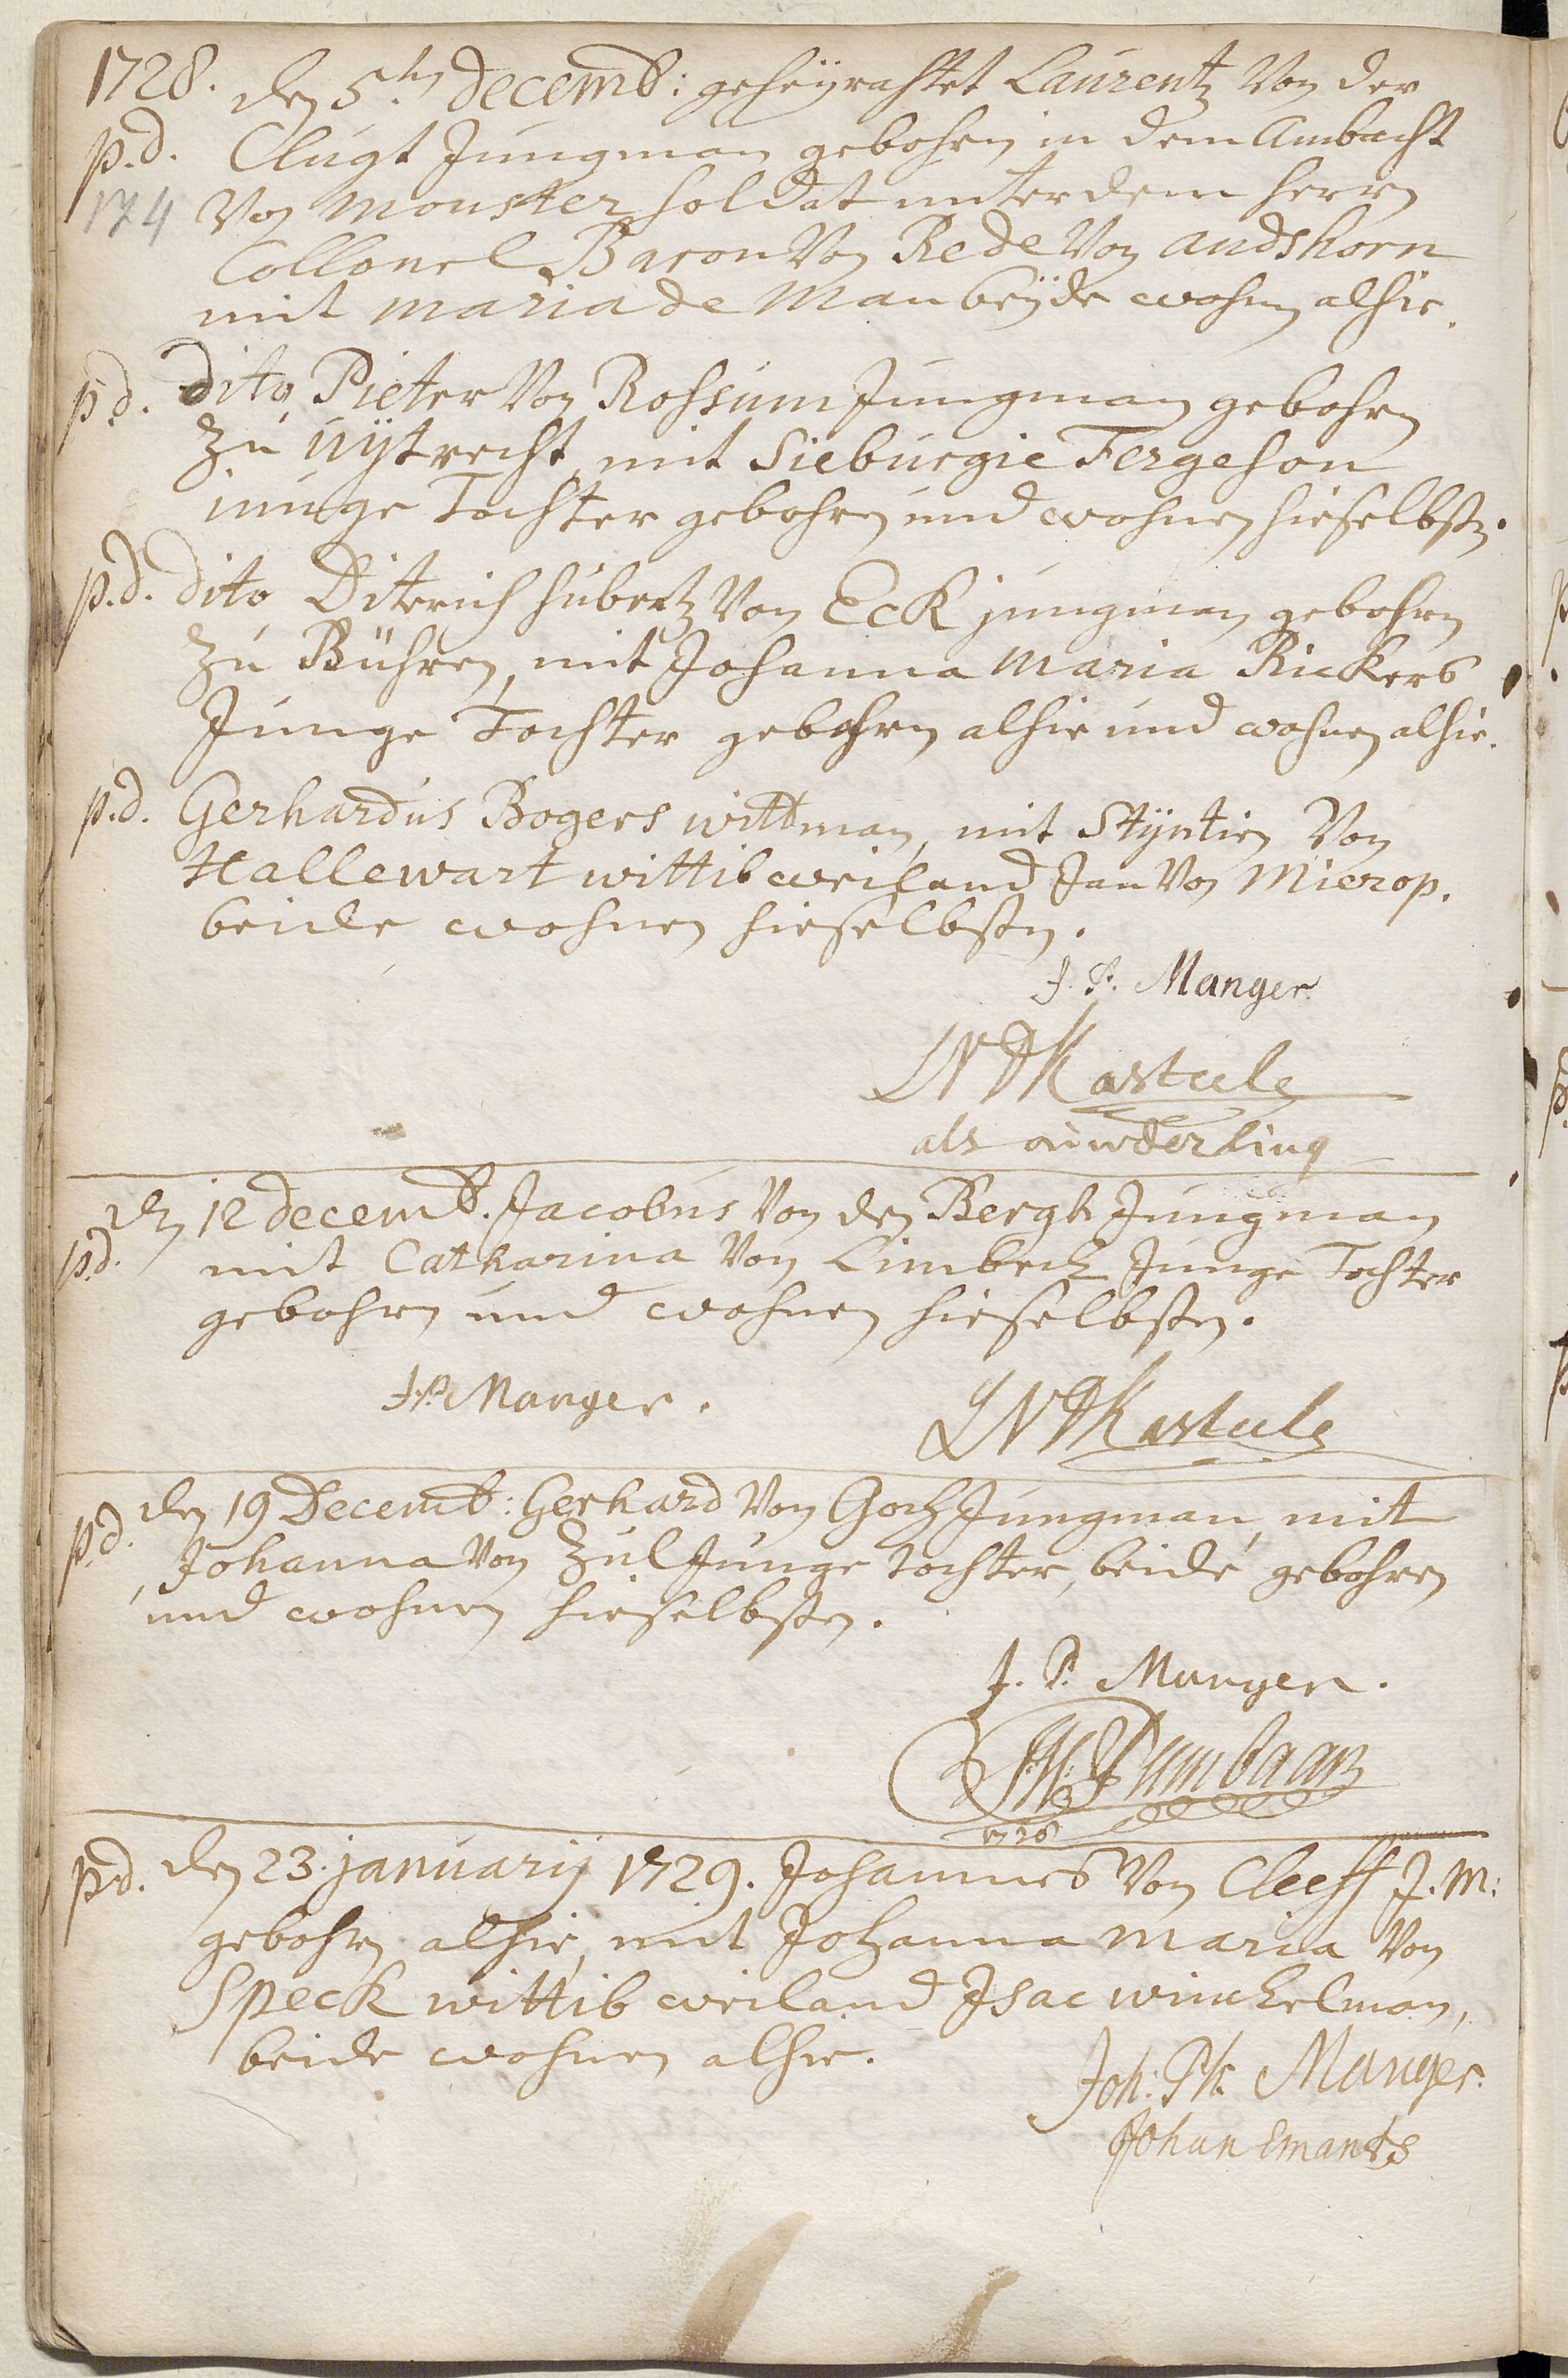 1728. den 5ten decemb: geheÿrahtet Laurentz Von der
p.d. Clugt Jungman gebohren in dem Ambacht
174 Von Monster soldat unter dem herrn
Collonel Baron Von Rede Von Audshorn
mit Maria de Man beÿde wohnen alhie.
p.d. dito Pieter Von Rohssum Jungman gebohren
zu Uÿtrecht, mit Sieburgie Fergeson
junge Tochter gebohren und wohnen hieselbsten.
p.d. dito Diterich hubertz Von Eck jungman gebohren
zu Bühren, mit Johanna Maria Rickers
Junge Tochter gebohren alhie und wohnen alhie.
p.d. Gerhardus Bogers wittman, mit Stÿntien Von
Hallewart wittib weiland Jan Von Mierop.
beide wohnen hieselbsten.
J. P. Manger.
als ouwderling
den 12 decemb. Jacobus Von den Bergh Jungman
p.d. mit Catharina Von Limbeck Junge Tochter
gebohren und wohnen hieselbsten.
J. P. Manger.
p.d. den 19 Decemb: Gerhard Von Goch Jungman, mit
Johanna Von Zul Junge tochter, beide gebohren
und wohnen hieselbsten.
J. P. Manger.
1728
p.d. den 23. januarij 1729. Johannes Von Cleeff J. M:
gebohren alhie, mit Johanna Maria Von
Speck wittib weiland Isac winckelman,
beide wohnen alhie.
Joh: Ph. Manger.
Johan Emants